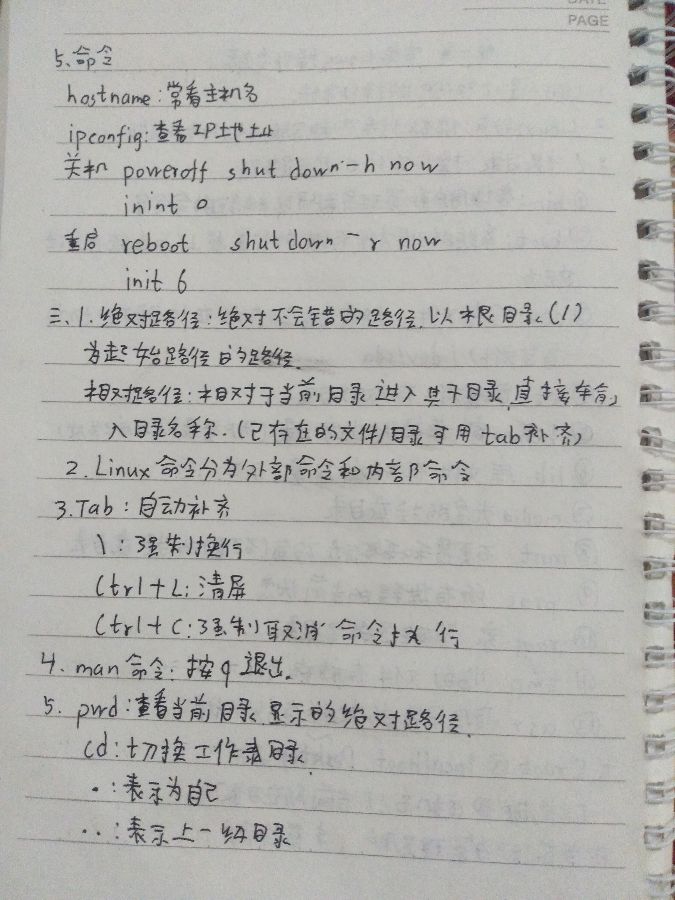 DATE
PAGE
5、命令
hostname:常看主机名
ipconfig:查看IP地址
关机 poweroff shutdown -h now
inint 0
重启 reboot shutdown - r now
init 6
三、1.绝对路径:绝对不会错的路径,以根目录(/)
为起始路径的路径.
相对路径:相对于当前目录进入其子目录,直接输
入目录名称.(已存在的文件/目录可用tab补齐)
2.Linux命令分为外部命令和内部命令
3.Tab:自动补齐
\:强制换行
Ctrl+L:清屏
Ctrl+C:强制取消命令执行
4.man命令:按q退出.
5.pwd:查看当前目录,显示的绝对路径.
cd:切换工作目录.
.:表示为自己
..:表示上一级目录